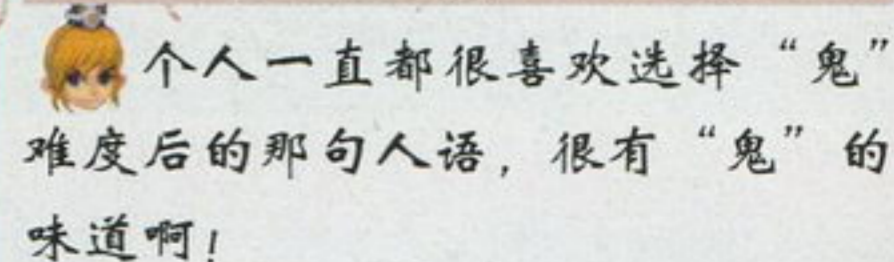 个人一直都很喜欢选择“鬼”
难度后的那句人语，很有“鬼”的
味道啊！